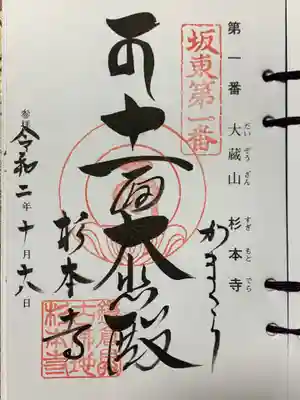 第一番 大蔵山 杉本寺
だいぞうざん すぎもとでら
坂東第一番
かまくら
十一面大悲殿
杉本寺
参拝 令和二年十月十六日